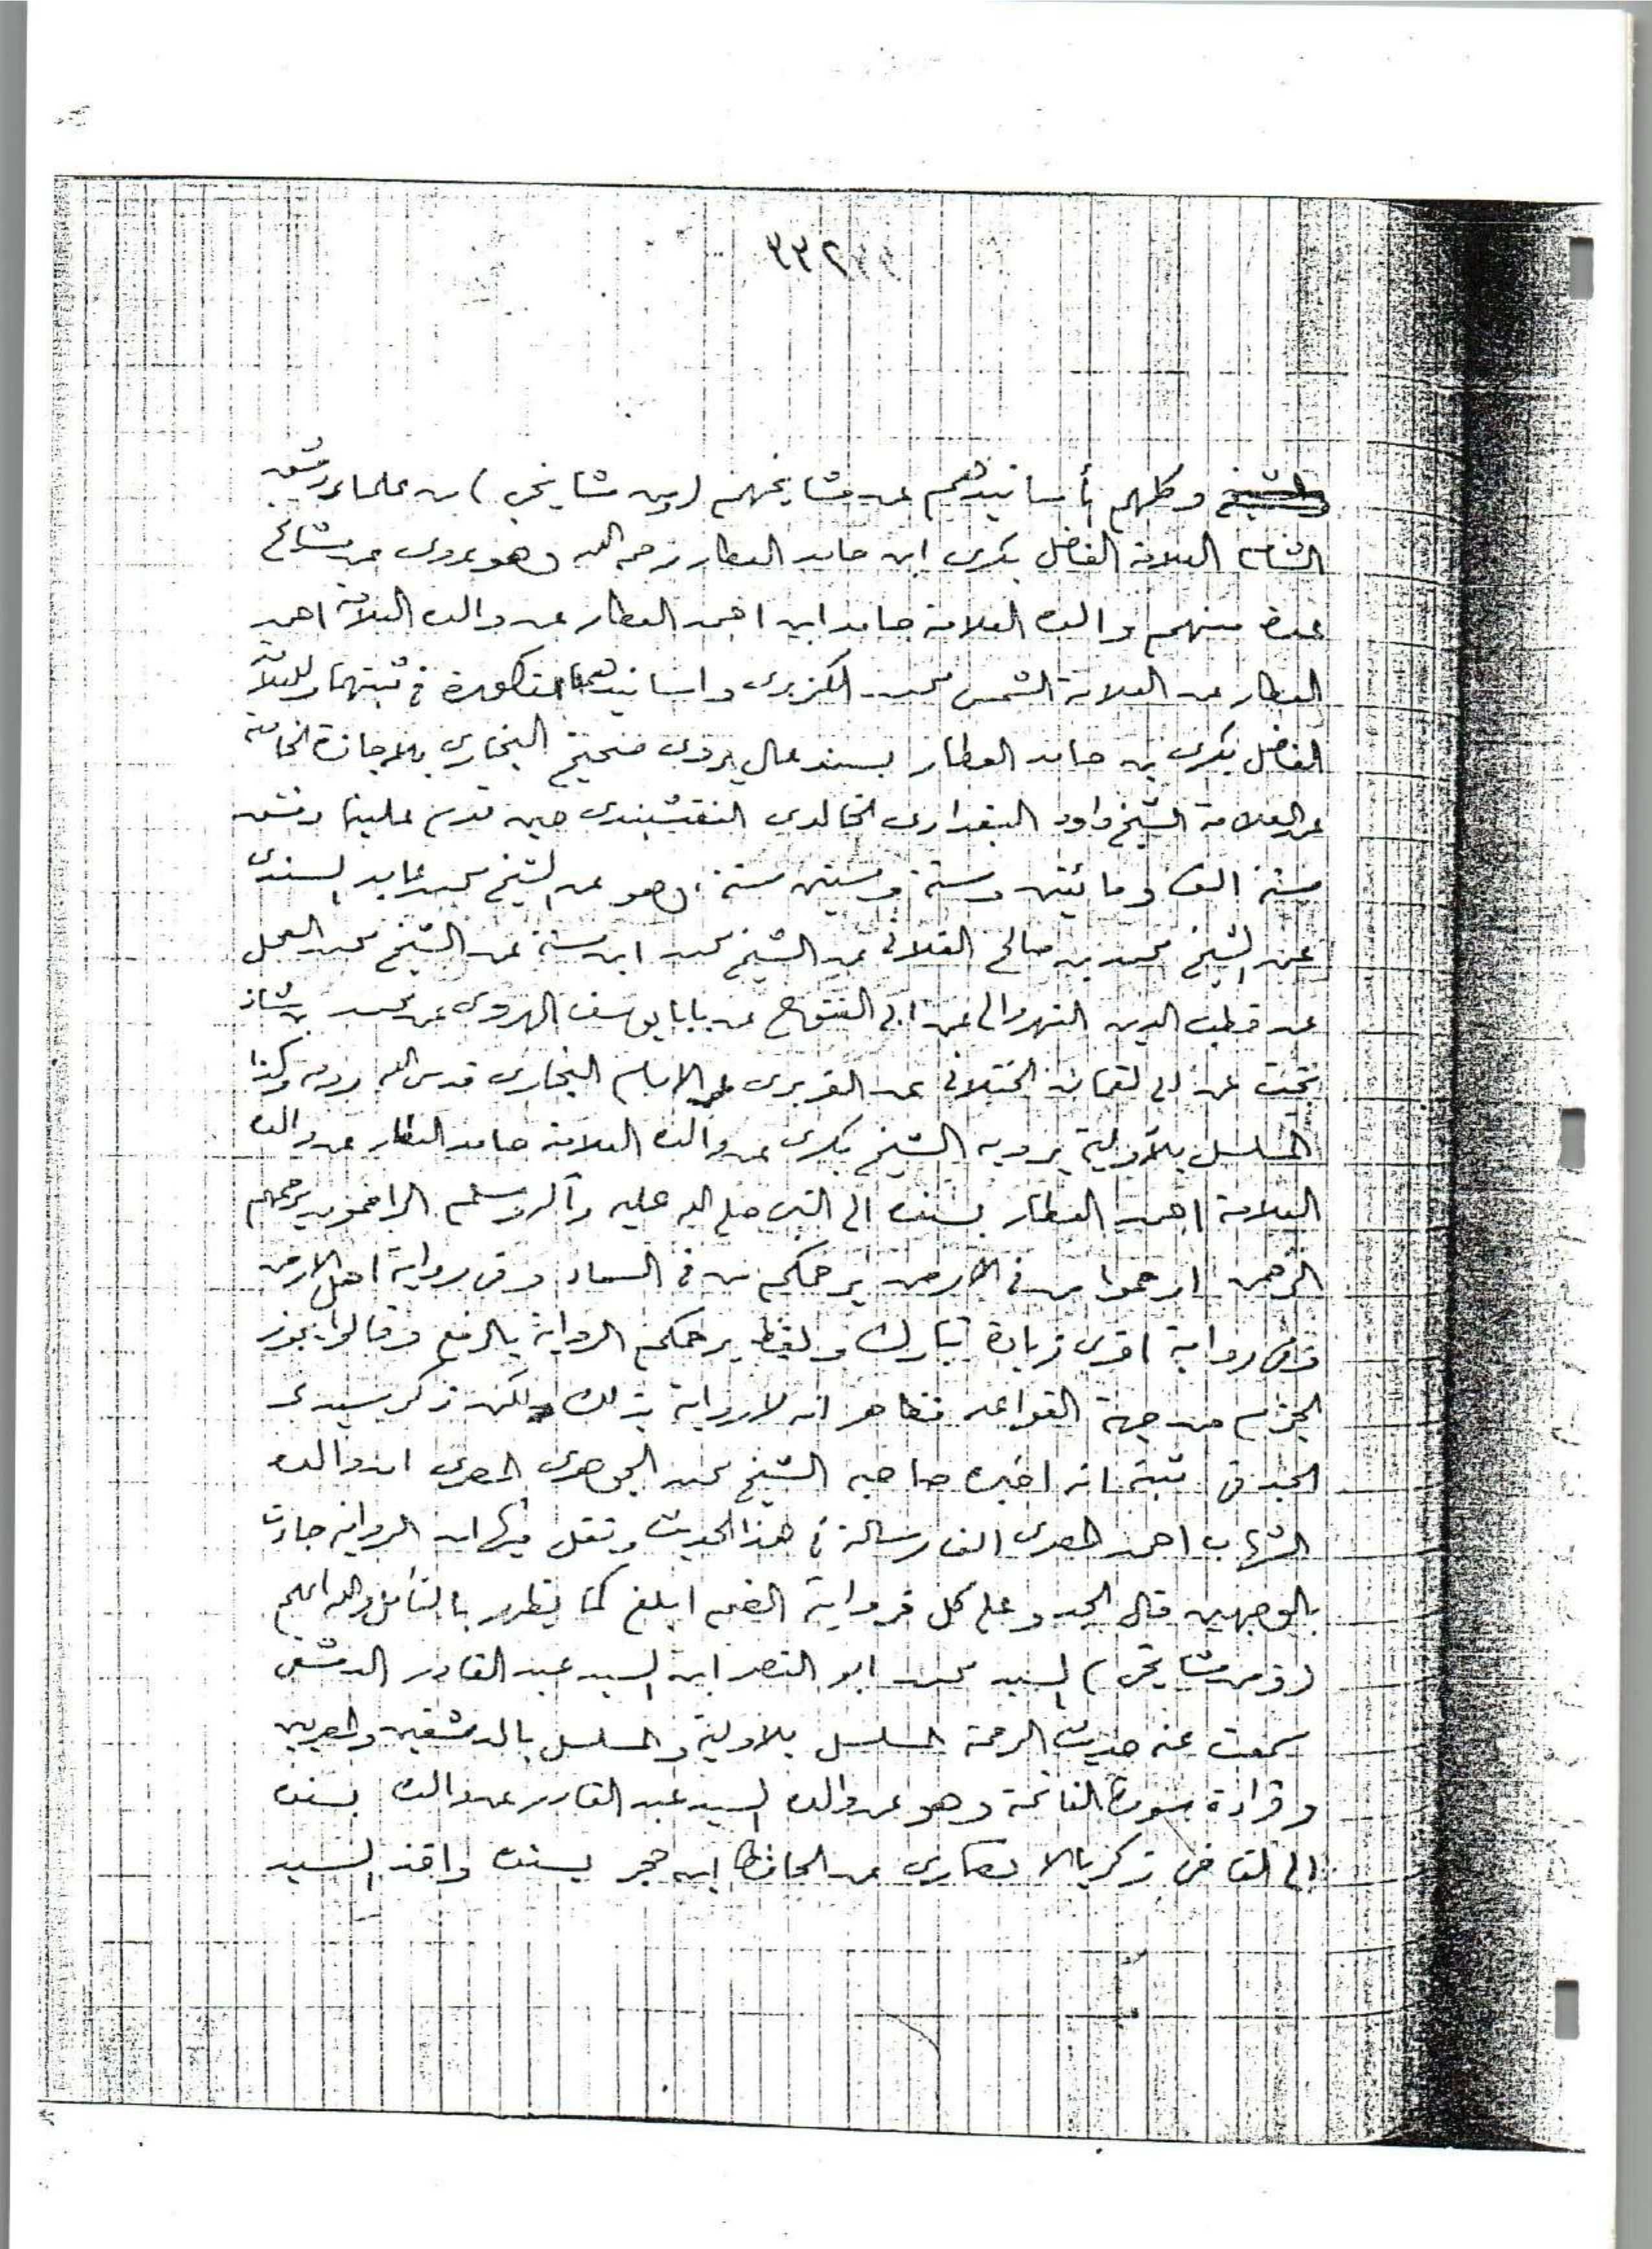 ٣٣٢
وكلهم بأسانيدهم عن مشايخهم (ومن مشايخي) من علماء دمشق
الشام العلامة الفاضل بكرى ابن حامد العطار رحمه الله وهو يروى عن مشائخ
عدة منهم والده العلامة حامد ابن احمد العطار عن والده العلامة احمد
العطار عن العلامة الشمس محمد الكزبرى واسانيدهما مذكورة في ثبتهما وللعلامة
الفاضل بكرى بن حامد العطار بسند عال يروى صحيح البخاري بالاجازة الخاصة
عن العلامة الشيخ داود البغدادى الخالدي النقشبندى حين قدم علينا دمشق
سنة الف ومائتين وستة وستين سنة، وهو عن الشيخ محمد عابد السندى
عن الشيخ محمد بن صالح الفلانى عن الشيخ محمد ابن سنة عن الشيخ محمد العجل
عن قطب الدين النهروالى عن ابى الفتوح عن بابا يوسف الهروى عن محمد بن شاذ
بخت عن ابى لقمان الختلانى عن الفربرى عن الامام البخارى قدس الله روحه وكذا
المسلسل بالأولية يرويه الشيخ بكرى عن والده العلامة حامد العطار عن والده
العلامة احمد العطار بسنده الى النبى صلى الله عليه وآله وسلم الراحمون يرحمهم
الرحمن ارحموا من فى الارض يرحمكم من فى السماء وفى رواية اهل الارض
وفى رواية اخرى زيادة تبارك ولفظ يرحمكم الرواية بالرفع وقالوا يجوز
الجزم من جهة القواعد فظاهر انه لا رواية بذلك ولكن ذكر سيدى
الجد فى ثبته انه اخبره صاحبه الشيخ محمد الجوهرى المصرى ان والده
الشهاب احمد المصرى الف رسالة فى هذا الحديث ونقل فيها ان الرواية جاءت
بالوجهين قال الجد وعلى كل فرواية الضم ابلغ كما يظهر بالتأمل والله اعلم
(ومن مشايخى) السيد محمد ابو النصر ابن السيد عبد القادر الدمشقى
سمعت عنه حديث الرحمة المسلسل بالاولية والمسلسل بالدمشقيين والمصريين
وقراءة سورة الفاتحة وهو عن والده السيد عبد القادر عن والده بسنده
الى القاضى زكريا الانصارى عن الحافظ ابن حجر بسنده واخذ السيد